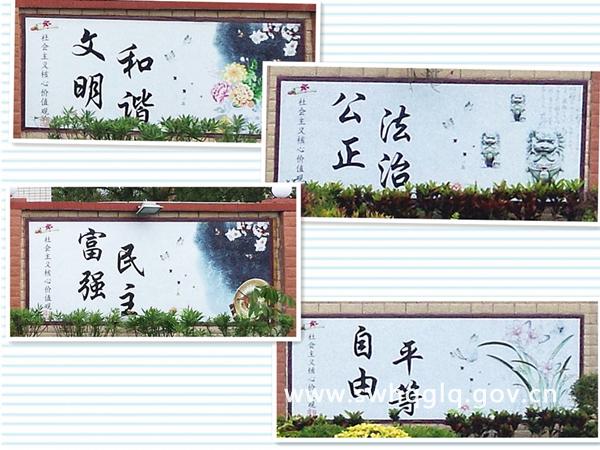 社会主义核心价值观
文明
和谐
社会主义核心价值观
公正
法治
社会主义核心价值观
富强
民主
社会主义核心价值观
自由
平等
www.swhcglq.gov.cn